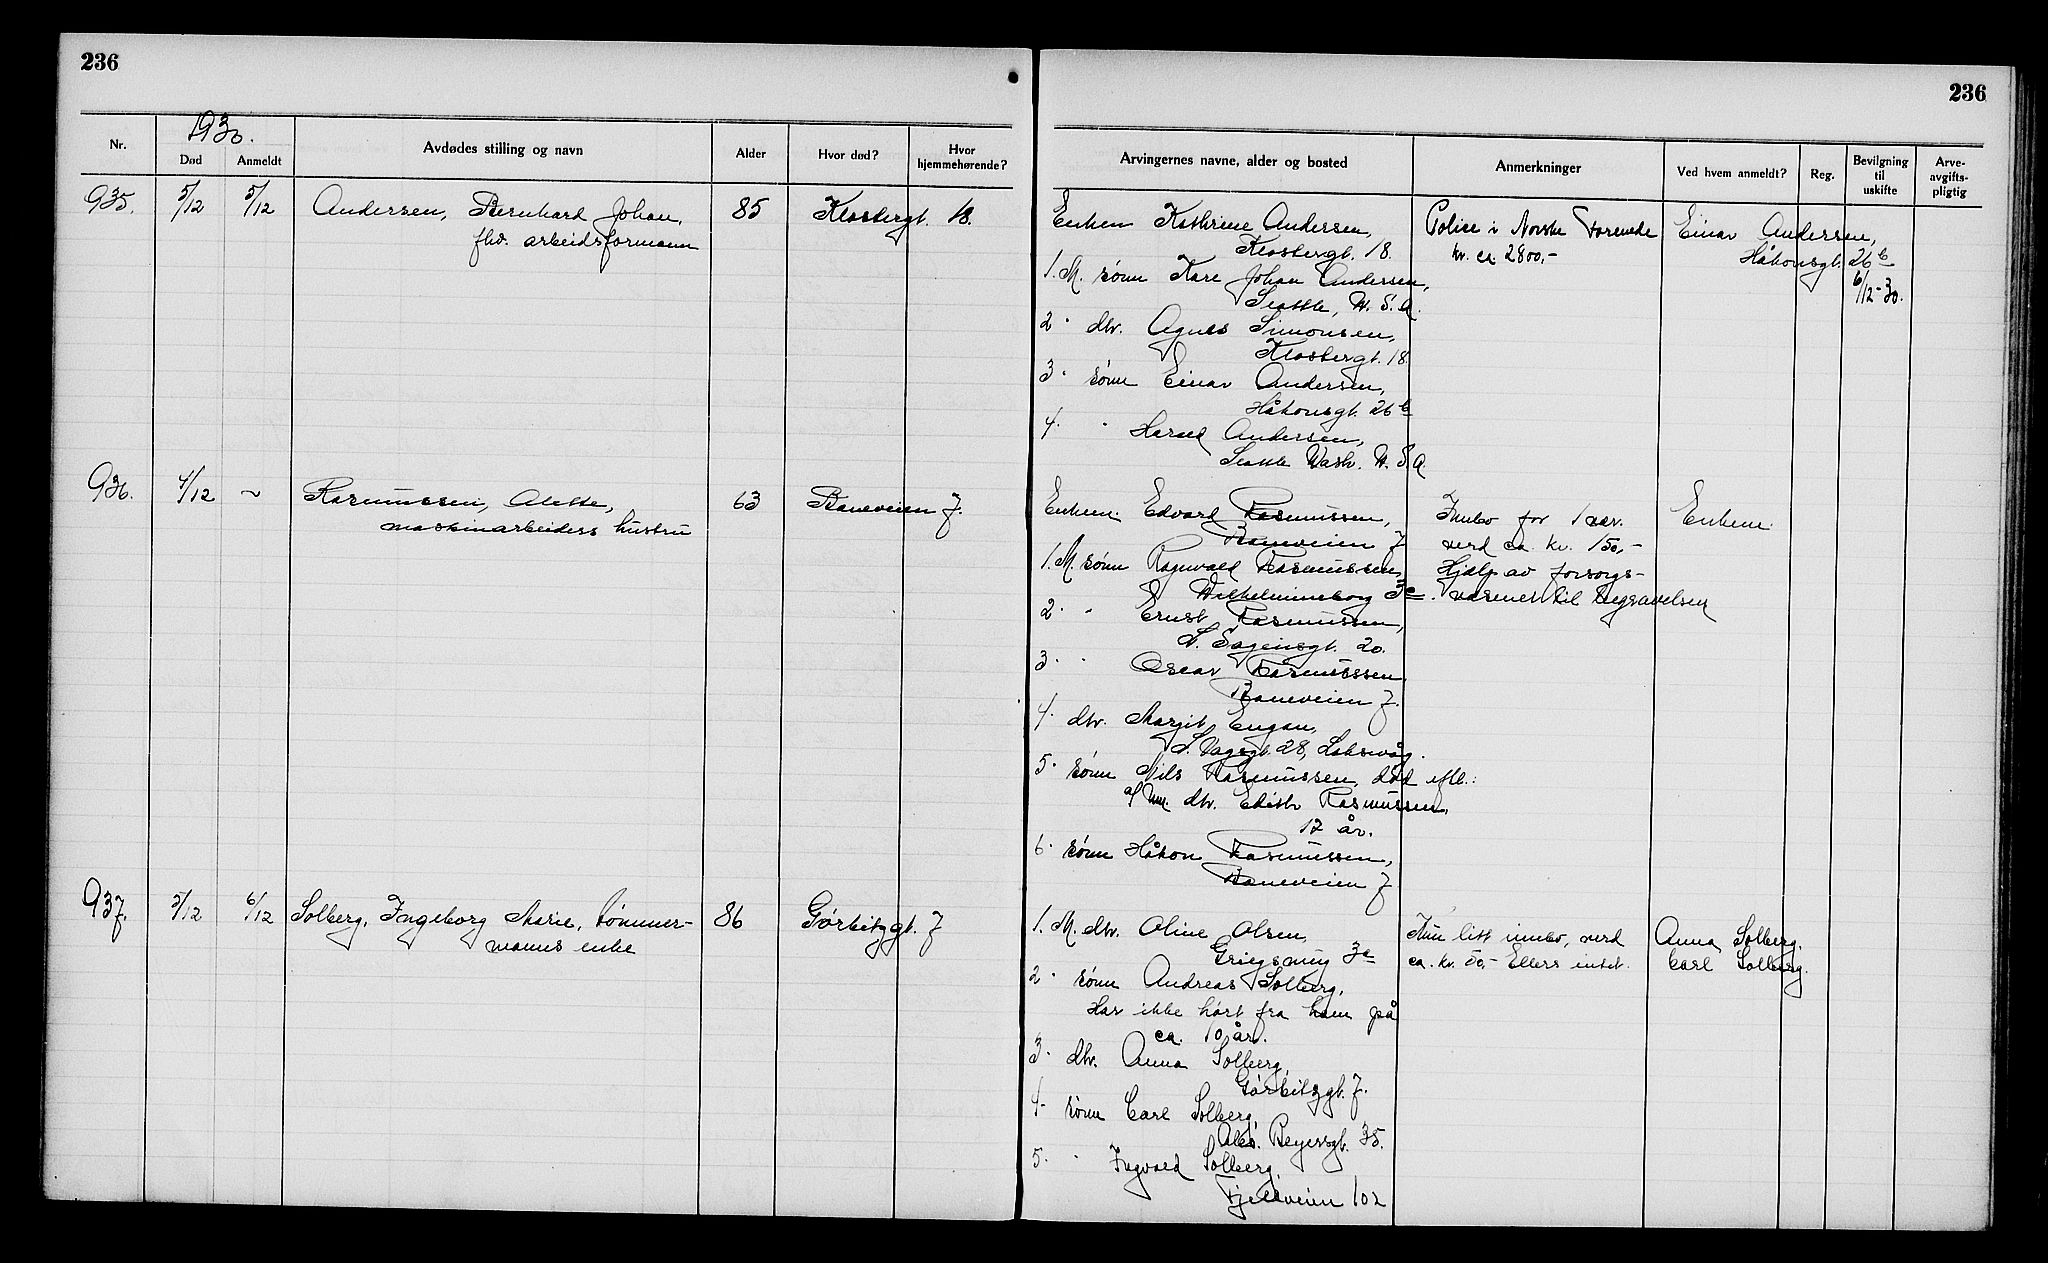 236
236
1930.
Nr.
Død
Anmeldt
Avdødes stilling og navn
Alder
Hvor død?
Hvor hjemmehørende?
Arvingernes navne, alder og bosted
Anmerkninger
Ved hvem anmeldt?
Reg.
Bevilgning til uskifte
Arve-avgifts-pligtig
935. 5/12 5/12 Andersen, Bernhard Johan, 85 Klostergt. 18.
fhv. arbeidsformann
Enken Kathrine Andersen,
Klostergt. 18.
1. M. sønn Kare Johan Andersen,
Seattle, U.S.A.
2. dtr. Agnes Simonsen,
Klostergt. 18.
3. sønn Einar Andersen,
Håkonsgt. 26 b
4. " Harald Andersen,
Seattle Wash. U.S.A.
Police i Norske Forenede
kr. ca. 2800,-
Einar Andersen,
Håkonsgt. 26 b
6/12-30.
936. 4/12 ~ Rasmussen, Alette, 63 Baneveien 7.
maskinarbeiders hustru
Enkem. Edvard Rasmussen,
Baneveien 7
1. M. sønn Ragnvald Rasmussen,
Wilhelmineborg 3c.
2. " Ernst Rasmussen,
L. Sagensgt. 20.
3. " Oscar Rasmussen
Baneveien 7.
4. dtr. Margit Engan,
28, Laksevåg.
5. sønn Nils Rasmussen, død eftl.:
a/ Um. dtr. Edith Rasmussen,
12 år.
6. sønn Håkon Rasmussen,
Baneveien 7
Innbo for 1 vær.
verd ca. kr. 150,-
Hjelp av forsorgs-
vesenet til begravelsen
Enkem.
937. 5/12 6/12 Solberg, Ingeborg Marie, tømmer- 86 Gørbitzgt. 7
manns enke
1. M. dtr. Oline Olsen,
Griegsmug 3c
2. sønn Andreas Solberg,
Har ikke hørt fra ham på
ca. 10 år.
3. dtr. Anna Solberg,
Gørbitzgt. 7.
4. sønn Carl Solberg,
Abs. Beyersgt. 35.
5. " Ingvald Solberg,
Fjellveien 102
Kun litt innbo, verd
ca. kr. 50,- Ellers intet.
Anna Solberg.
Carl Solberg.